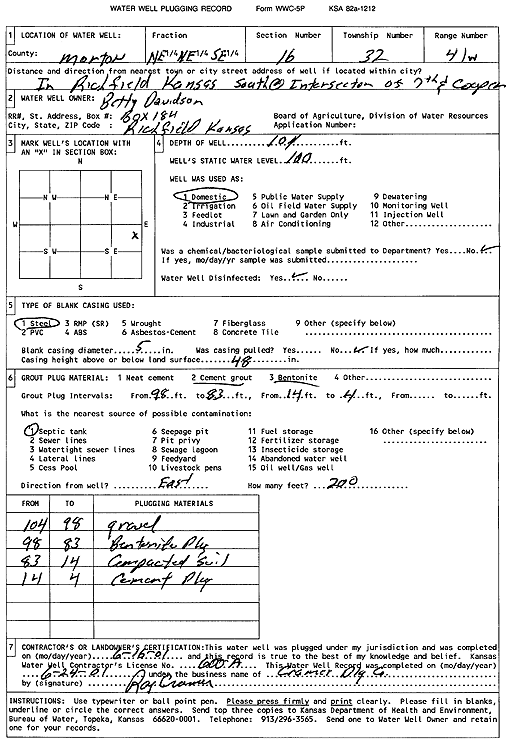 WATER WELL PLUGGING RECORD Form WWC-5P KSA 82a-1212
1 LOCATION OF WATER WELL: Fraction Section Number Township Number Range Number
County: Morton NE1/4 NE1/4 SE1/4 16 32 41w
Distance and direction from nearest town or city street address of well if located within city?
In Richfield Kansas South @ Intersection of 7th &
2 WATER WELL OWNER: Betty Davidson
RR#, St. Address, Box #: Box 184 Board of Agriculture, Division of Water Resources
City, State, ZIP Code : Richfield Kansas Application Number:
3 MARK WELL'S LOCATION WITH AN "X" IN SECTION BOX:
N
N W N E
W E
S W S E
X
S
4 DEPTH OF WELL....104....ft.
WELL'S STATIC WATER LEVEL..100....ft.
WELL WAS USED AS:
1 Domestic 5 Public Water Supply 9 Dewatering
2 Irrigation 6 Oil Field Water Supply 10 Monitoring Well
3 Feedlot 7 Lawn and Garden Only 11 Injection Well
4 Industrial 8 Air Conditioning 12 Other..........
Was a chemical/bacteriological sample submitted to Department? Yes....No.✓
If yes, mo/day/yr sample was submitted...............
Water Well Disinfected: Yes.✓. No......
5 TYPE OF BLANK CASING USED:
1 Steel 3 RMP (SR) 5 Wrought 7 Fiberglass 9 Other (specify below)
2 PVC 4 ABS 6 Asbestos-Cement 8 Concrete Tile ....................
Blank casing diameter...5....in. Was casing pulled? Yes...... No..✓. If yes, how much..........
Casing height above or below land surface......48.......in.
6 GROUT PLUG MATERIAL: 1 Neat cement 2 Cement grout 3 Bentonite 4 Other....................
Grout Plug Intervals: From.98..ft. to.83.ft., From..14ft. to .4..ft., From...... to......ft.
What is the nearest source of possible contamination:
1 Septic tank 6 Seepage pit 11 Fuel storage 16 Other (specify below)
2 Sewer lines 7 Pit privy 12 Fertilizer storage ....................
3 Watertight sewer lines 8 Sewage lagoon 13 Insecticide storage
4 Lateral lines 9 Feedyard 14 Abandoned water well
5 Cess Pool 10 Livestock pens 15 Oil well/Gas well
Direction from well? ........East........ How many feet? ..200........
FROM TO PLUGGING MATERIALS
104 98 gravel
98 83 Bentonite Plug
83 14 Compacted Soil
14 4 Cement Plug
7 CONTRACTOR'S OR LANDOWNER'S CERTIFICATION: This water well was plugged under my jurisdiction and was completed
on (mo/day/year)...6-15-01.... and this record is true to the best of my knowledge and belief. Kansas
Water Well Contractor's License No. ....600 A.... This Water Well Record was completed on (mo/day/year)
...6-24-01.... under the business name of ...Cramer Plg Co...
by (signature) Roy Cramer
INSTRUCTIONS: Use typewriter or ball point pen. Please press firmly and print clearly. Please fill in blanks,
underline or circle the correct answers. Send top three copies to Kansas Department of Health and Environment,
Bureau of Water, Topeka, Kansas 66620-0001. Telephone: 913/296-3565. Send one to Water Well Owner and retain
one for your records.